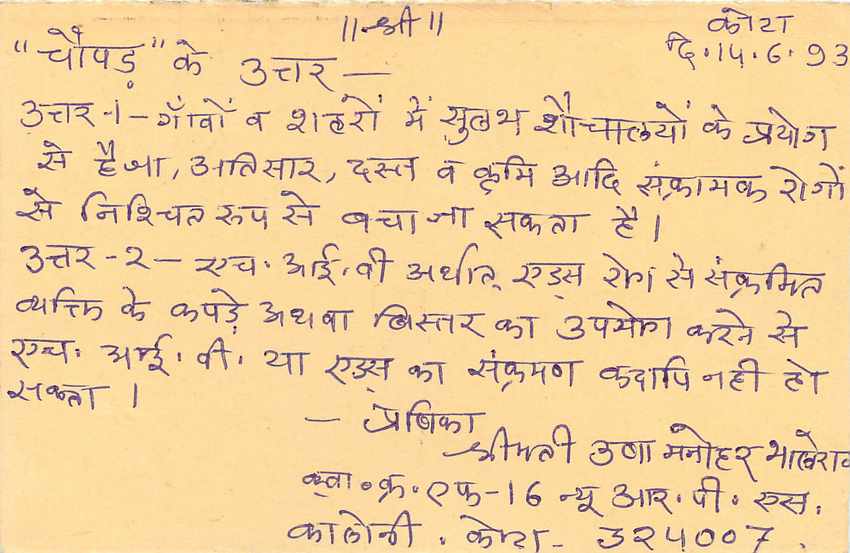 ॥श्री॥
कोटा
दि. 14.6.93
"चौपड़" के उत्तर —
उत्तर-1- गाँवों व शहरों में सुलभ शौचालयों के प्रयोग
से हैजा, अतिसार, दस्त व कृमि आदि संक्रामक रोगों
से निश्चित रूप से बचा जा सकता है।
उत्तर-२- एच. आई. वी अर्थात् एड्स रोग से संक्रमित
व्यक्ति के कपड़े अथवा बिस्तर का उपयोग करने से
एच. आई. वी. या एड्स का संक्रमण कदापि नही हो
सकता।
— प्रेषिका
श्रीमती उषा मनोहर भालेराव
क्वा. क्र. एफ-16 न्यू आर. पी. एस.
कालोनी. कोटा- 324007.